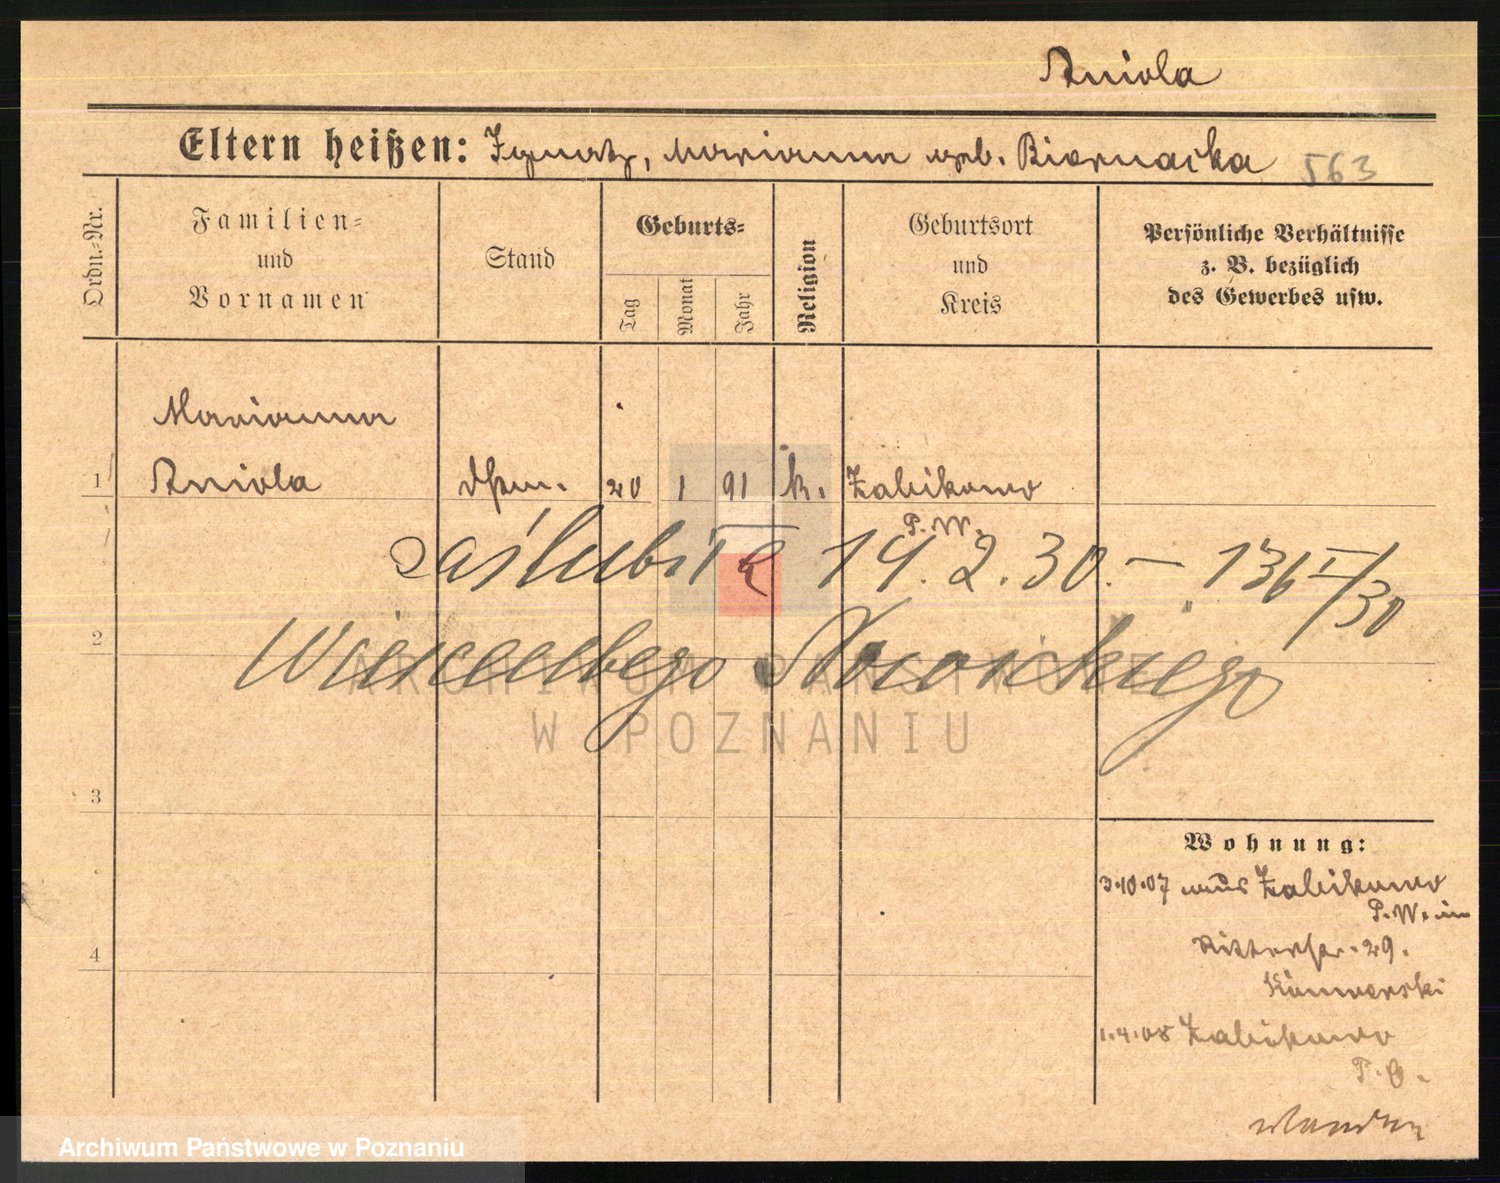 Aniola
Eltern heißen: Ignatz, Marianna geb. Biernacka 563
Ordn.-Nr.
Familien-
und
Vornamen
Stand
Geburts-
Tag
Monat
Jahr
Religion
Geburtsort
und
Kreis
Persönliche Verhältnisse
z. B. bezüglich
des Gewerbes usw.
Marianna
1 Aniola Dstm. 20 1 91 k. Zabikowo
P.W.
zaślubiła 14.2.30. – 136 I/30
2
Wincentego Nowickiego
3
4
Wohnung:
3.10.07 aus Zabikowo
P.W. in
Ritterstr. 29.
1.4.08 Zabikowo
P.O.
ARCHIWUM PAŃSTWOWE
W POZNANIU
Archiwum Państwowe w Poznaniu